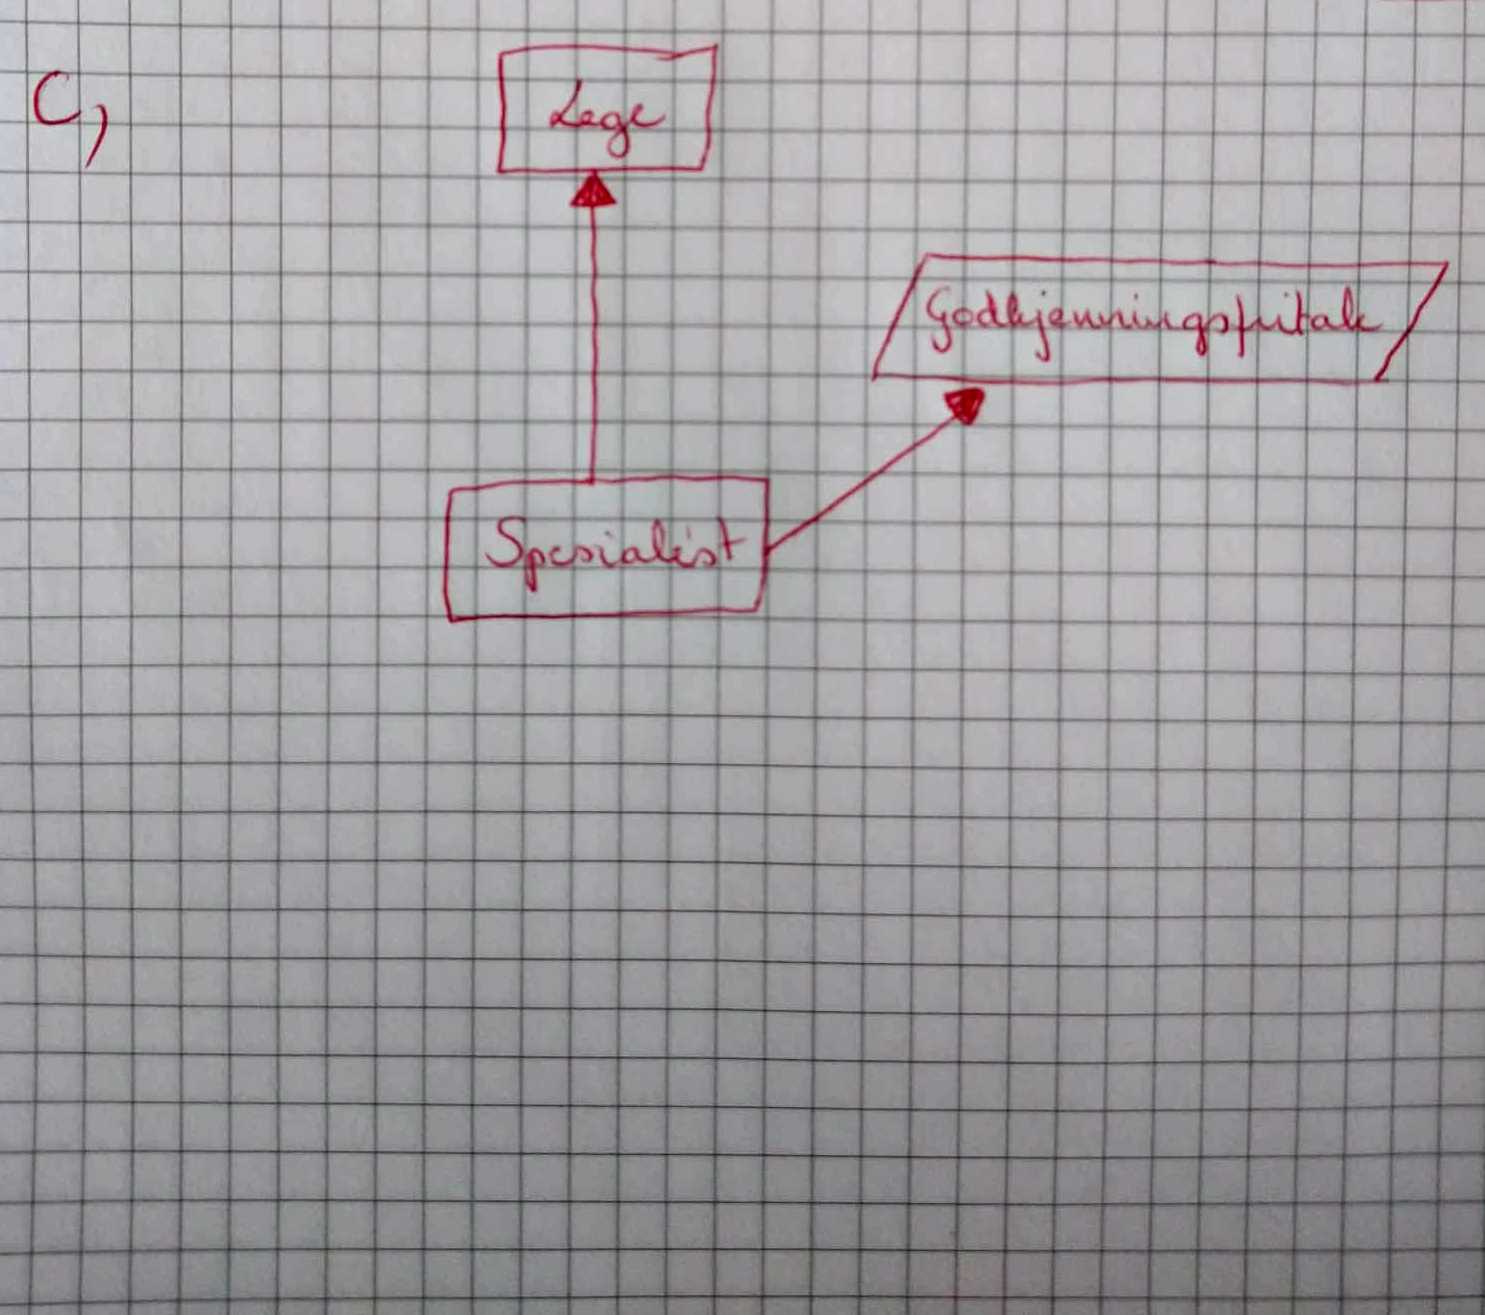 C,
Lege
Godkjenningsfritak
Spesialist